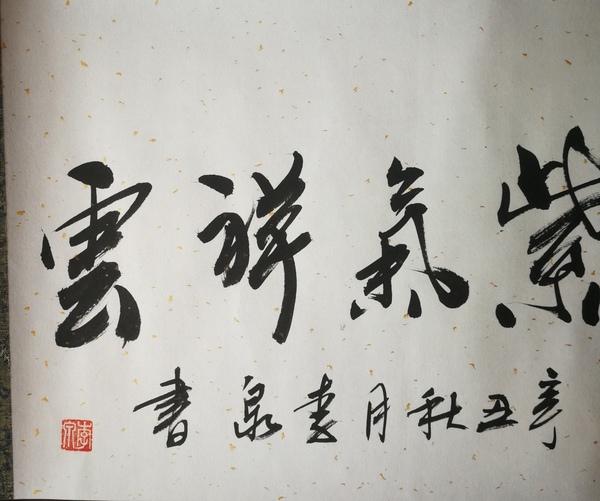 紫氣祥雲
辛丑秋月李泉書